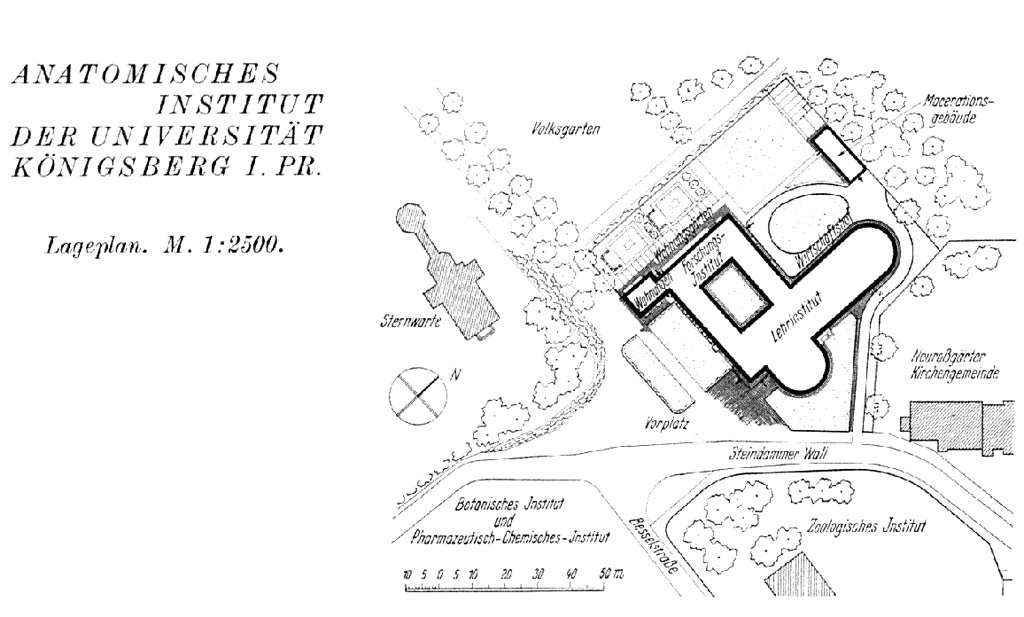 ANATOMISCHES
INSTITUT
DER UNIVERSITÄT
KÖNIGSBERG I. PR.
Lageplan. M. 1:2500.
Volksgarten
Macerations-
gebäude
Wohnungsgärten
Forschungs-
Institut
Wohnungen
Wirtschaftshof
Lehrinstitut
Sternwarte
N
Vorplatz
Neuroßgärter
Kirchengemeinde
Steindammer Wall
Botanisches Institut
und
Pharmazeutisch-Chemisches-Institut
Besselstraße
Zoologisches Institut
10 5 0 5 10 20 30 40 50 m